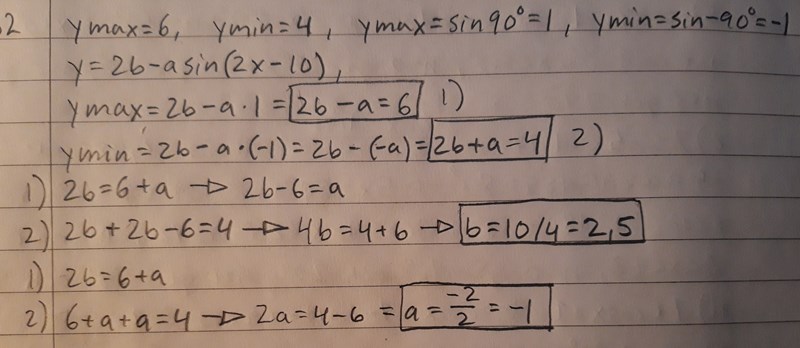 .2 ymax=6, ymin=4, ymax=sin90°=1, ymin=sin-90°=-1
y=2b-a sin(2x-10),
ymax=2b-a·1=2b-a=6 1)
ymin=2b-a·(-1)=2b-(-a)=2b+a=4 2)
1) 2b=6+a → 2b-6=a
2) 2b+2b-6=4 → 4b=4+6 → b=10/4=2,5
1) 2b=6+a
2) 6+a+a=4 → 2a=4-6 = a=-2/2=-1